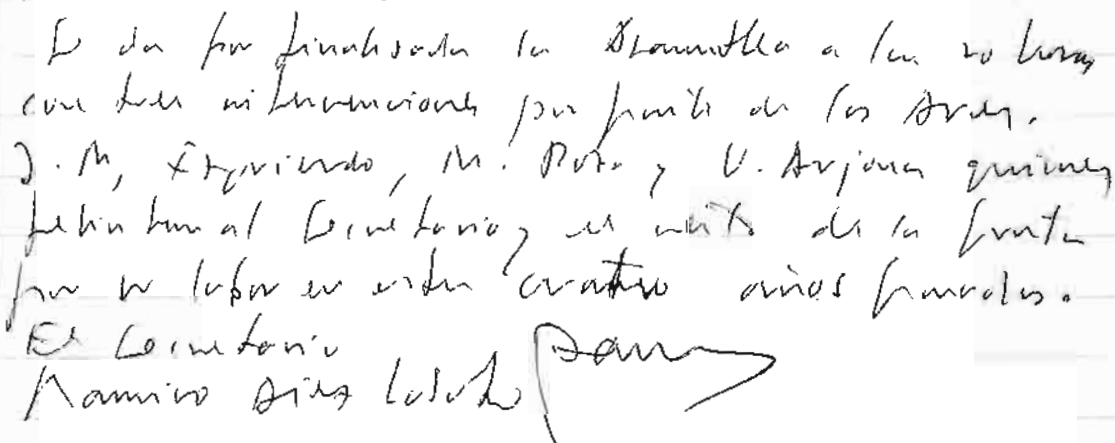 Se da por finalizada la Asamblea a las 20 horas
con tres intervenciones por parte de los Sres.
J. M. Izquierdo, M. y V. Arjona quienes
felicitan al Secretario y al resto de la Junta
por su labor en estos cuatro años pasados.
El Secretario
Ramiro Díez